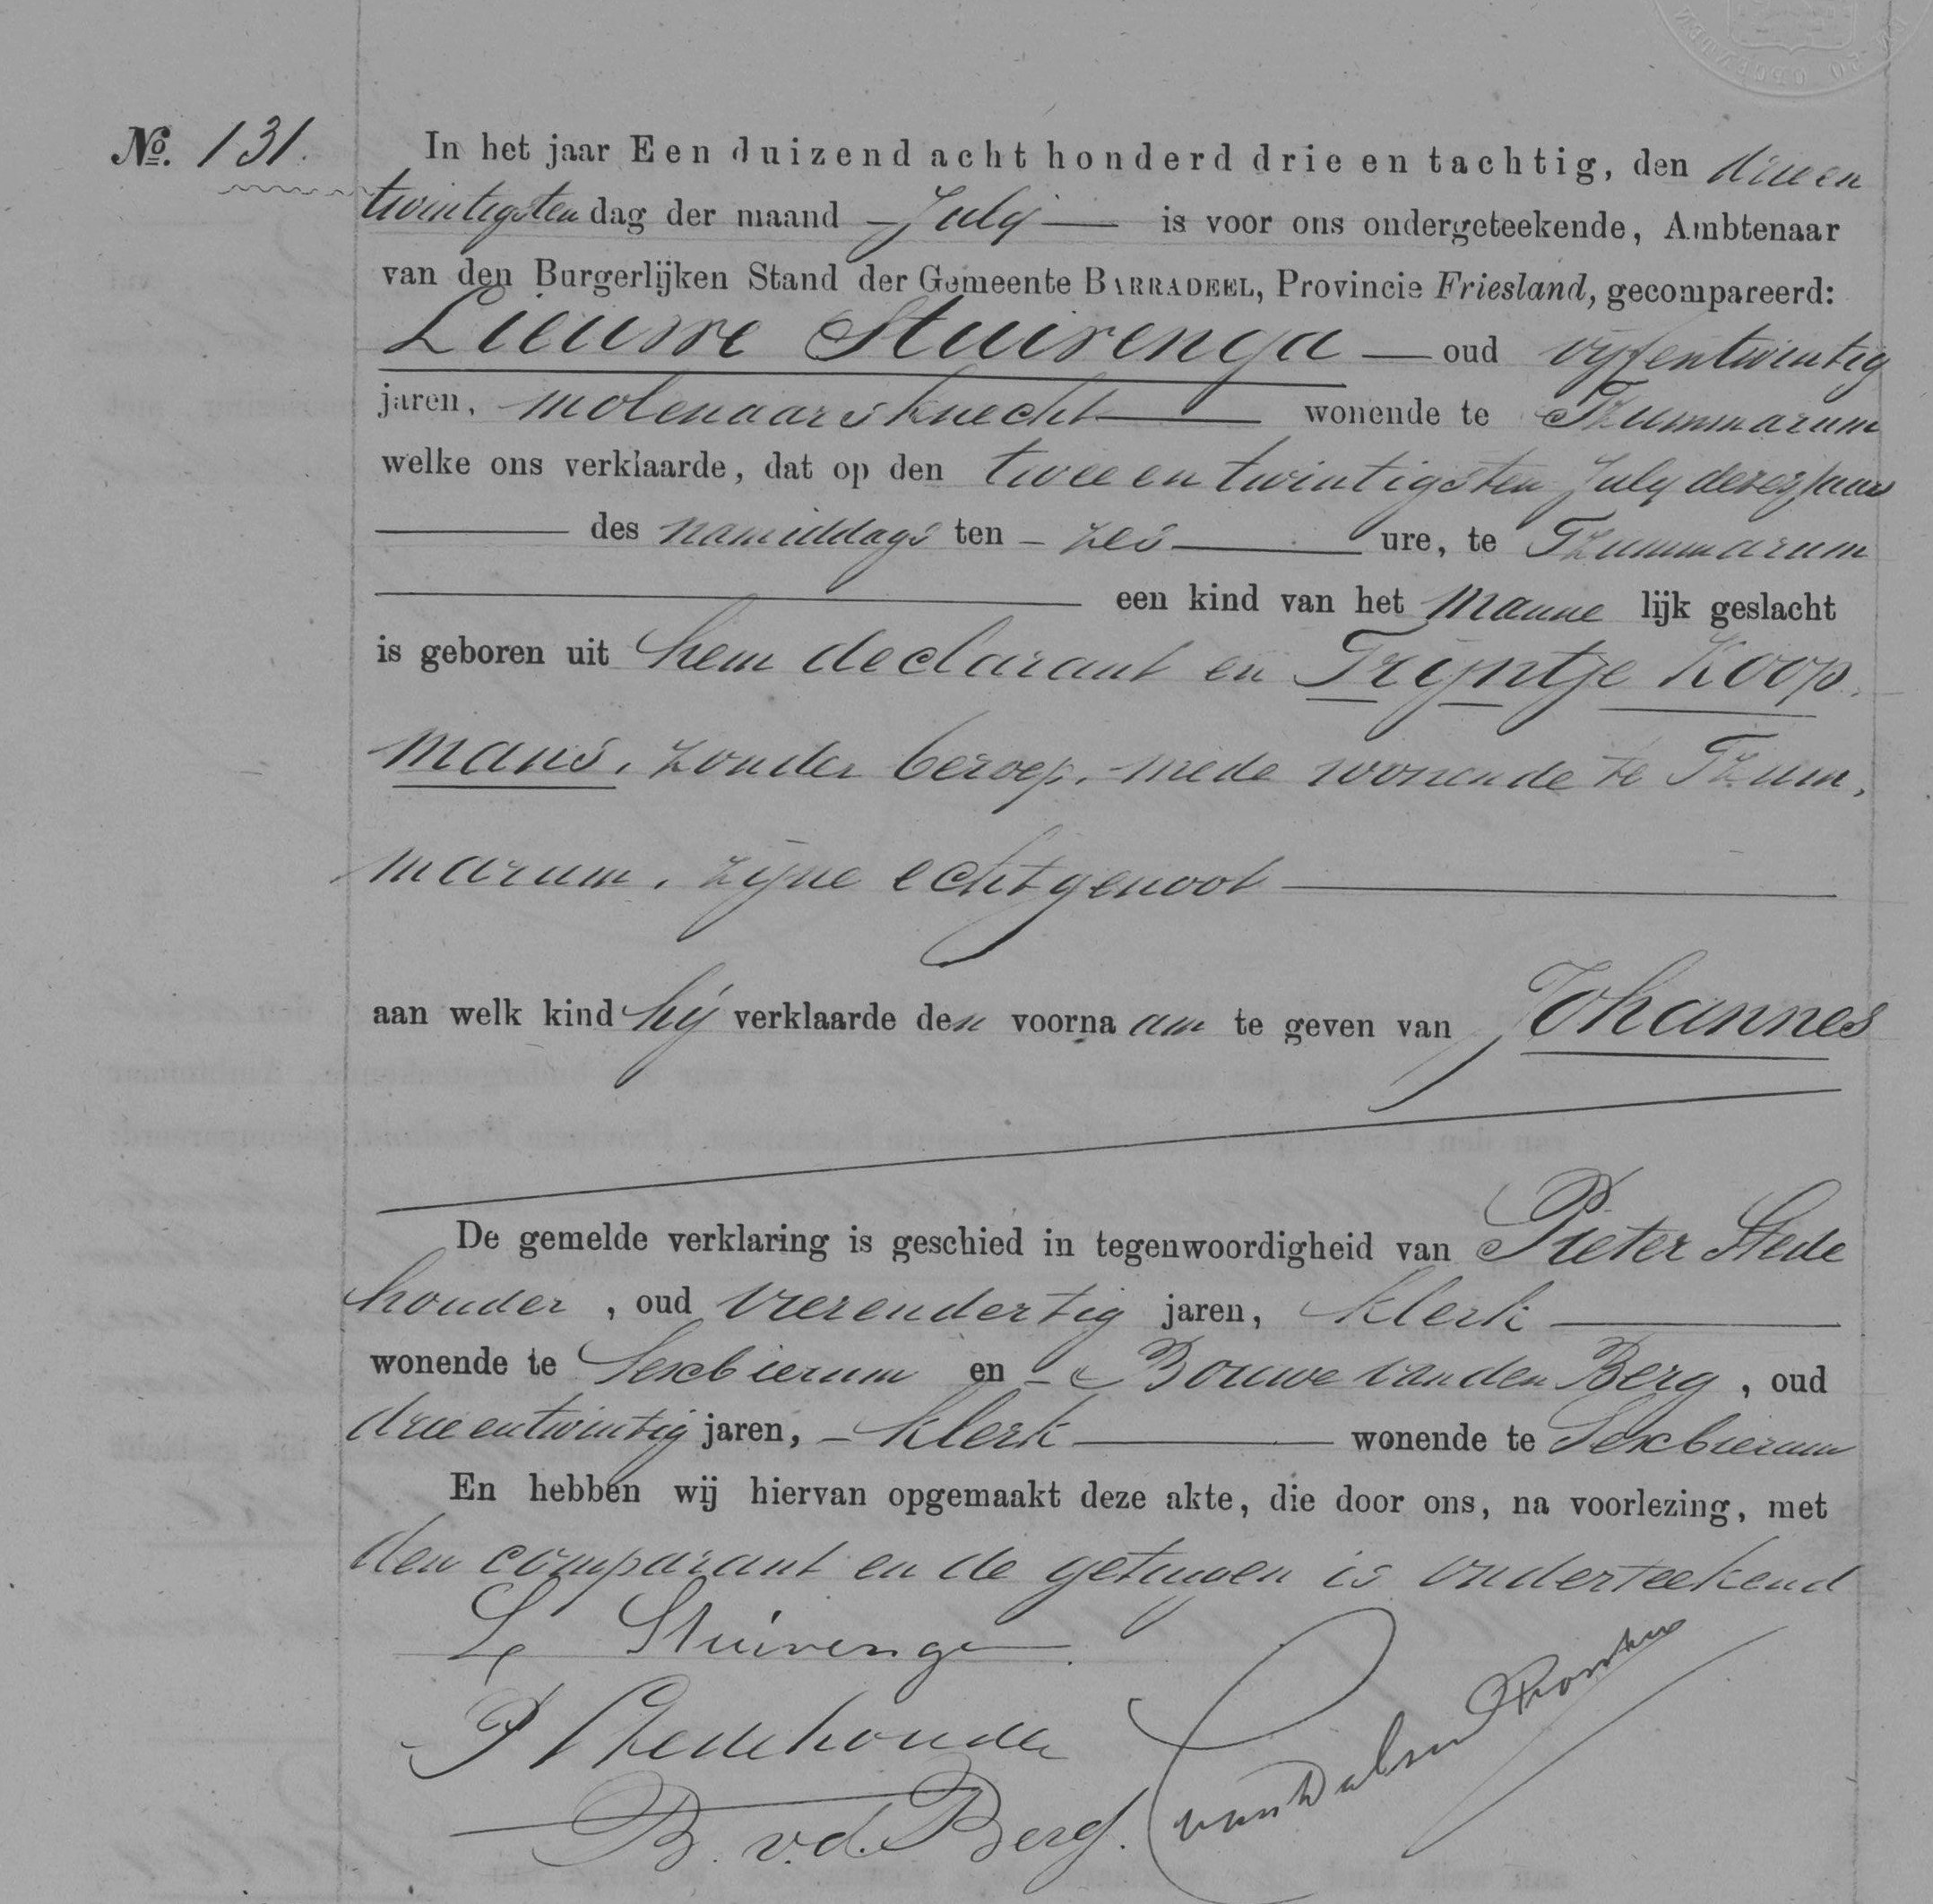 No. 131.
In het jaar Een duizend acht honderd drie en tachtig, den drieen
twintigsten dag der maand — July — is voor ons ondergeteekende, Ambtenaar
van den Burgerlijken Stand der Gemeente BARRADEEL, Provincie Friesland, gecompareerd:
Lieuwe Stuivenga — oud vijfentwintig
jaren, molenaarsknecht — wonende te Tzummarum
welke ons verklaarde, dat op den twee en twintigsten July dezes jaars
— des namiddags ten – zes — ure, te Tzummarum
— een kind van het manne lijk geslacht
is geboren uit hem declarant en Trijntje Koop
mans, zonder beroep, mede wonende te Tzum,
marum, zijne echtgenoot —
aan welk kind hij verklaarde den voorna am te geven van Johannes
De gemelde verklaring is geschied in tegenwoordigheid van Pieter Stede
houder, oud vierendertig jaren, klerk —
wonende te Sexbierum en – Bouwe van den Berg, oud
drieentwintig jaren, – klerk — wonende te Sexbierum
En hebben wij hiervan opgemaakt deze akte, die door ons, na voorlezing, met
den comparant en de getuigen is onderteekend
L Stuivenga
P Stedehouder
B. v.d. Berg.